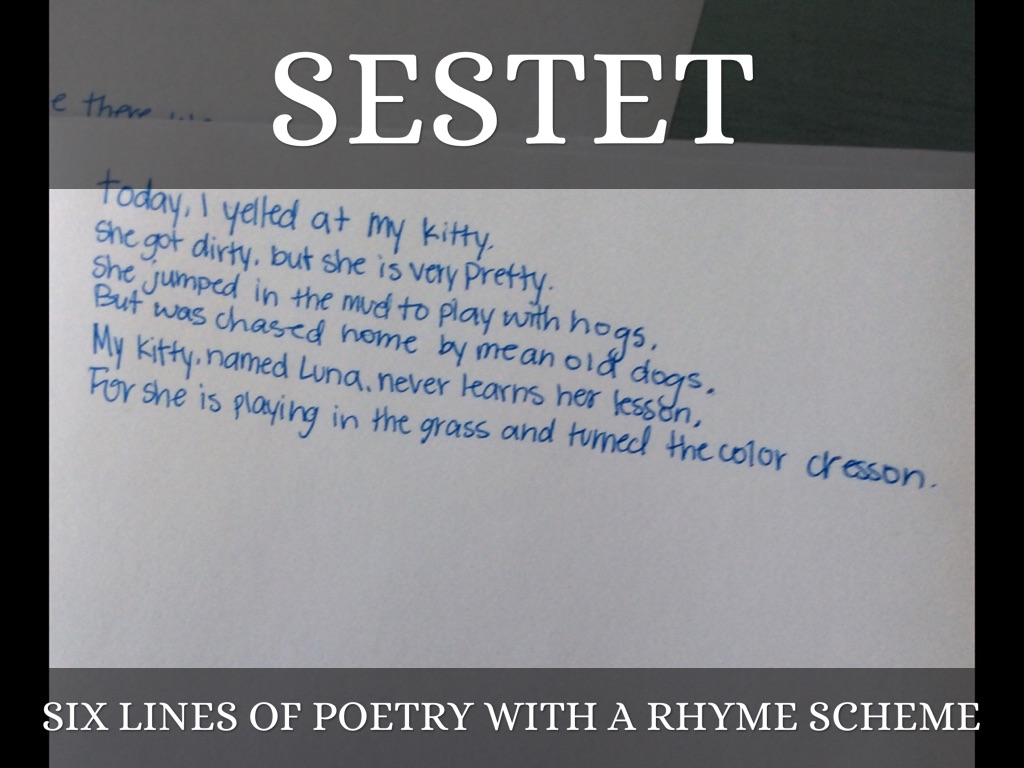 SESTET
e there
today, I yelled at my kitty.
She got dirty, but she is very Pretty.
She jumped in the mud to play with hogs,
But was chased home by mean old dogs.
My kitty, named Luna, never learns her lesson,
For she is playing in the grass and turned the color cresson.
SIX LINES OF POETRY WITH A RHYME SCHEME